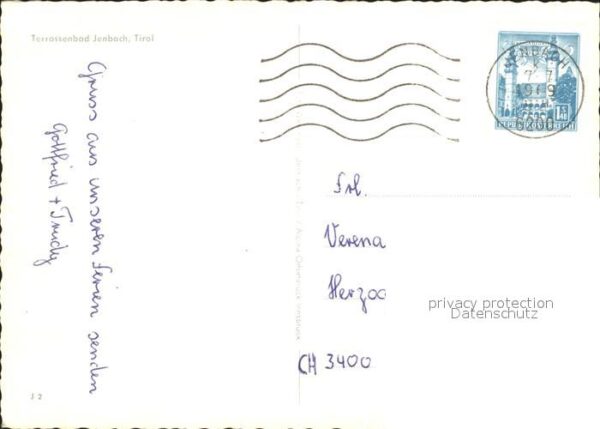 Terrassenbad Jenbach, Tirol
Gruss aus unseren Ferien senden
Gottfried + Trudy
JENBACH
7.7
1969
6200
1.50
REPUBLIK ÖSTERREICH
Frl.
Verena
Herzog
CH 3400
privacy protection
Datenschutz
J 2